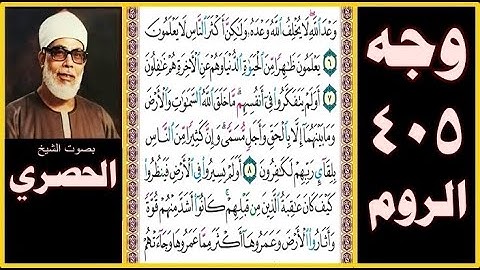 وجه
٤٠٥
الروم
وَعْدَ ٱللَّهِ لَا يُخْلِفُ ٱللَّهُ وَعْدَهُۥ وَلَٰكِنَّ أَكْثَرَ ٱلنَّاسِ لَا يَعْلَمُونَ
٦ يَعْلَمُونَ ظَٰهِرًا مِّنَ ٱلْحَيَوٰةِ ٱلدُّنْيَا وَهُمْ عَنِ ٱلْءَاخِرَةِ هُمْ غَٰفِلُونَ
٧ أَوَلَمْ يَتَفَكَّرُوا۟ فِىٓ أَنفُسِهِم مَّا خَلَقَ ٱللَّهُ ٱلسَّمَٰوَٰتِ وَٱلْأَرْضَ
وَمَا بَيْنَهُمَآ إِلَّا بِٱلْحَقِّ وَأَجَلٍ مُّسَمًّى وَإِنَّ كَثِيرًا مِّنَ ٱلنَّاسِ
بِلِقَآئِ رَبِّهِمْ لَكَٰفِرُونَ ٨ أَوَلَمْ يَسِيرُوا۟ فِى ٱلْأَرْضِ فَيَنظُرُوا۟
كَيْفَ كَانَ عَٰقِبَةُ ٱلَّذِينَ مِن قَبْلِهِمْ كَانُوٓا۟ أَشَدَّ مِنْهُمْ قُوَّةً
وَأَثَارُوا۟ ٱلْأَرْضَ وَعَمَرُوهَآ أَكْثَرَ مِمَّا عَمَرُوهَا وَجَآءَتْهُمْ
بصوت الشيخ
الحصري